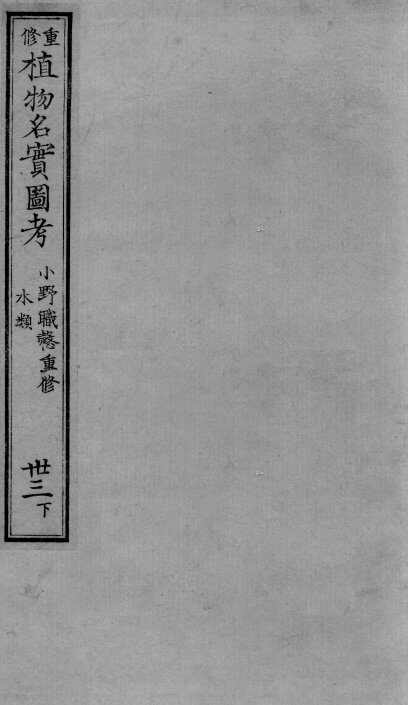 重修
植物名實圖考
小野職愨重修
水類
卅三下